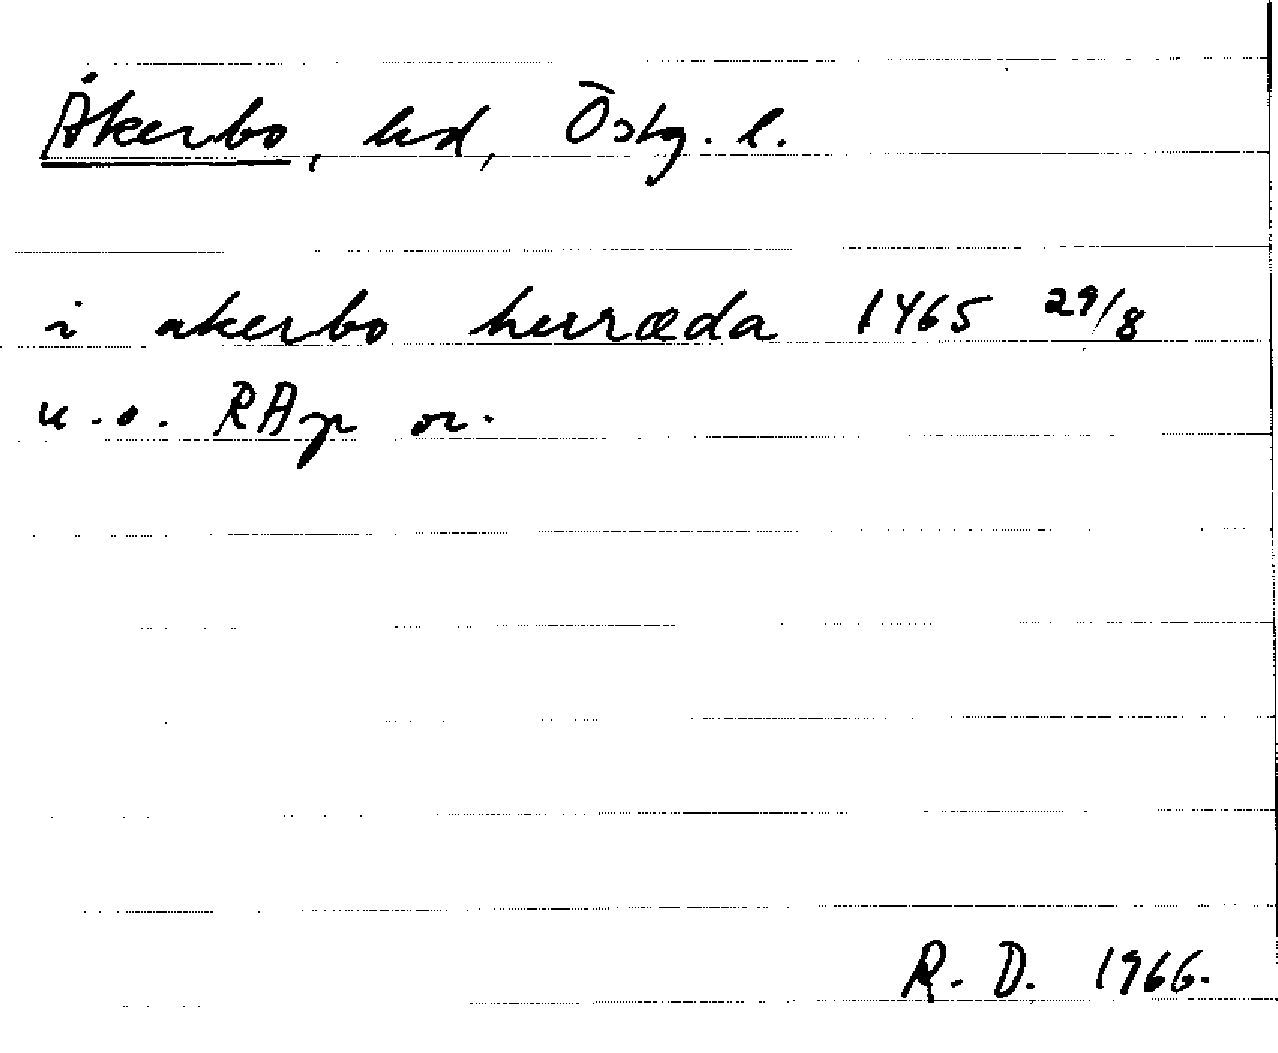 Åkerbo, hd, Östg. l.
i akerbo herræda 1465 29/8
u.o. RAp or.
R. D. 1966.